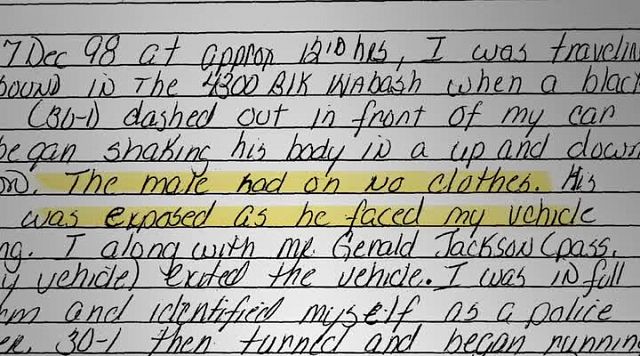 7 Dec 98 at approx 1210 hrs, I was travelin
bound in the 4300 Blk Wabash when a black
(30-1) dashed out in front of my car
began shaking his body in a up and down
on. The male had on no clothes. His
was exposed as he faced my vehicle
ng. I along with mr. Gerald Jackson (pass.
y vehicle) exited the vehicle. I was in full
rm and identified myself as a police
er. 30-1 then turned and began runnin